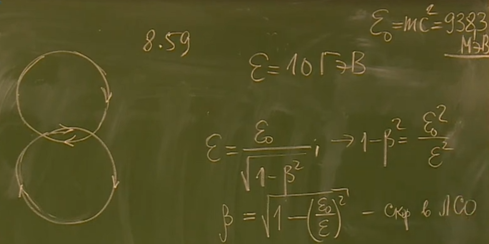 8.59
ℰ₀=mc²=938,3
МэВ
ℰ=10ГэВ
ℰ=ℰ₀/√(1-β²); → 1-β²=ℰ₀²/ℰ²
β=√(1-(ℰ₀/ℰ)²) – скр в ЛСО